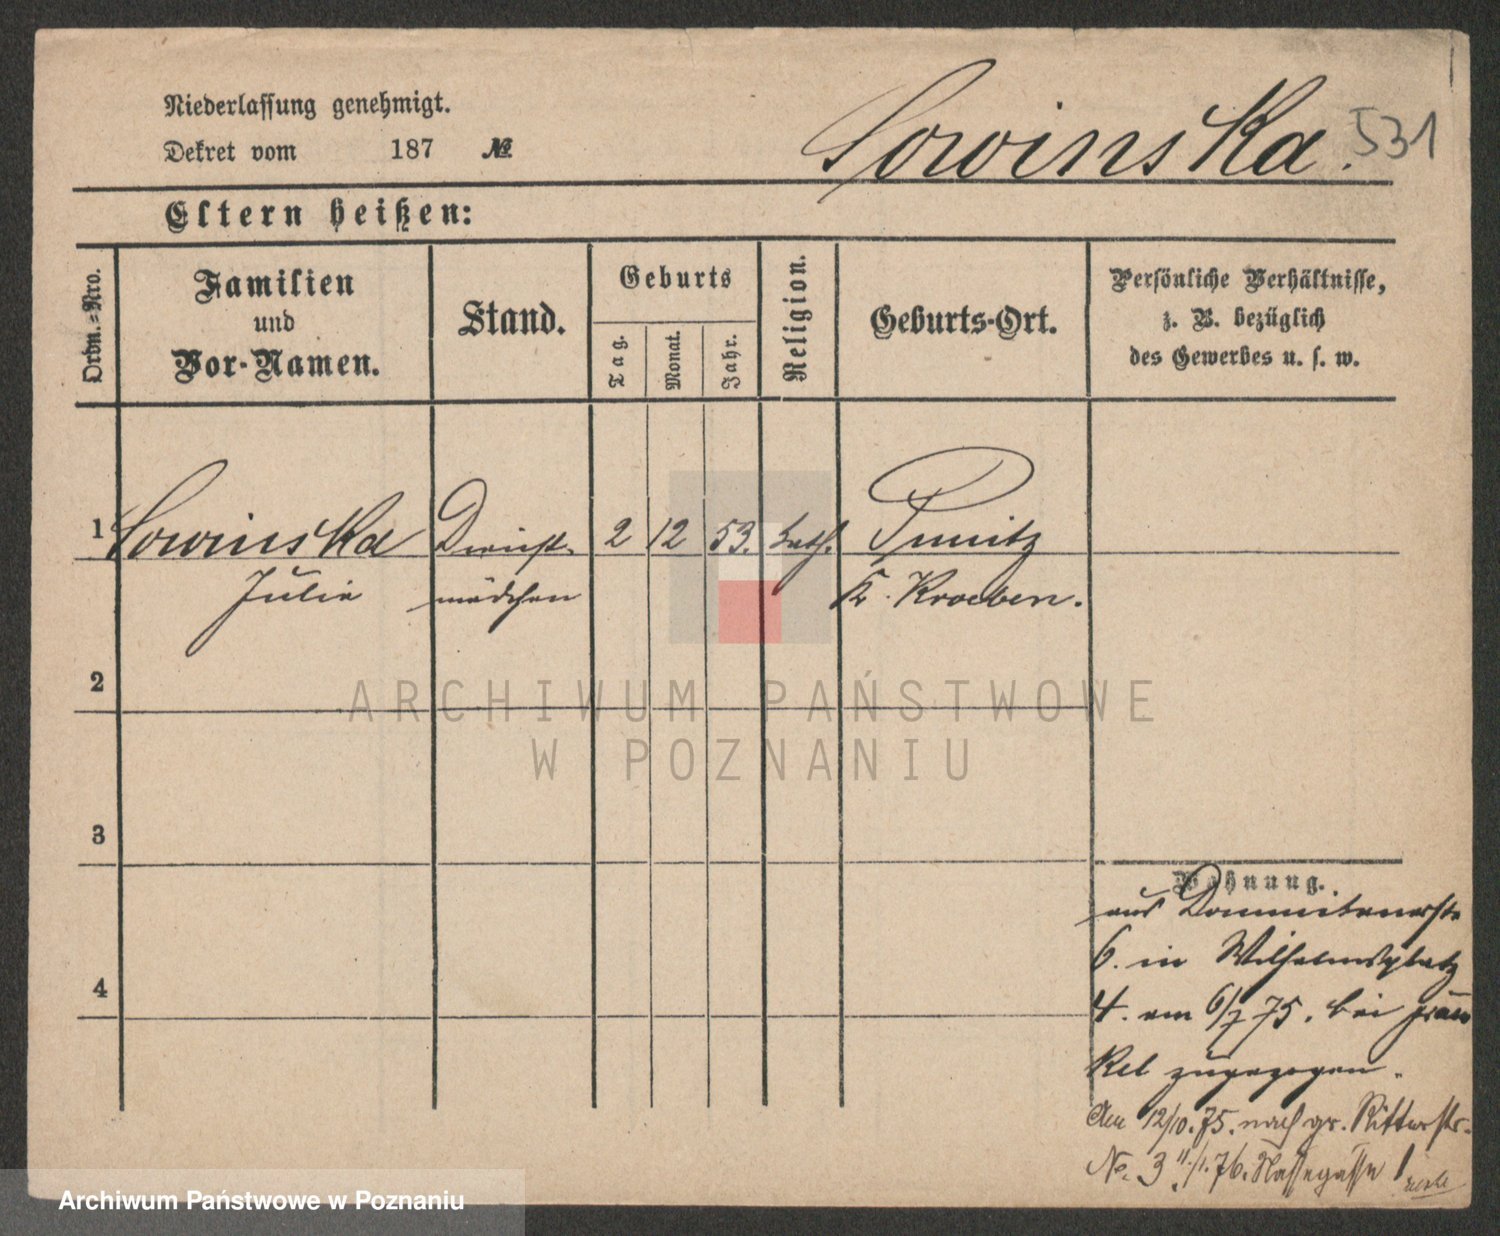 Niederlassung genehmigt.
Dekret vom 187 №
Sowinska. 531
Eltern heißen:
Ordn.-Nro.
Familien
und
Vor-Namen.
Stand.
Geburts
Tag.
Monat.
Jahr.
Religion.
Geburts-Ort.
Persönliche Verhältnisse,
z. B. bezüglich
des Gewerbes u. s. w.
1 Sowinska Dienst- 2 12 53. kath. Punitz
Julie mädchen Kr. Kroeben.
2
ARCHIWUM PAŃSTWOWE
W POZNANIU
3
Wohnung.
aus Dominikanerstr
6. in Wilhelmsplatz
4. am 6/7 75. bei
zugezogen.
Am 12/10. 75. nach gr. Ritterstr.
No. 3 /1. 76. Nassegasse 1
Archiwum Państwowe w Poznaniu